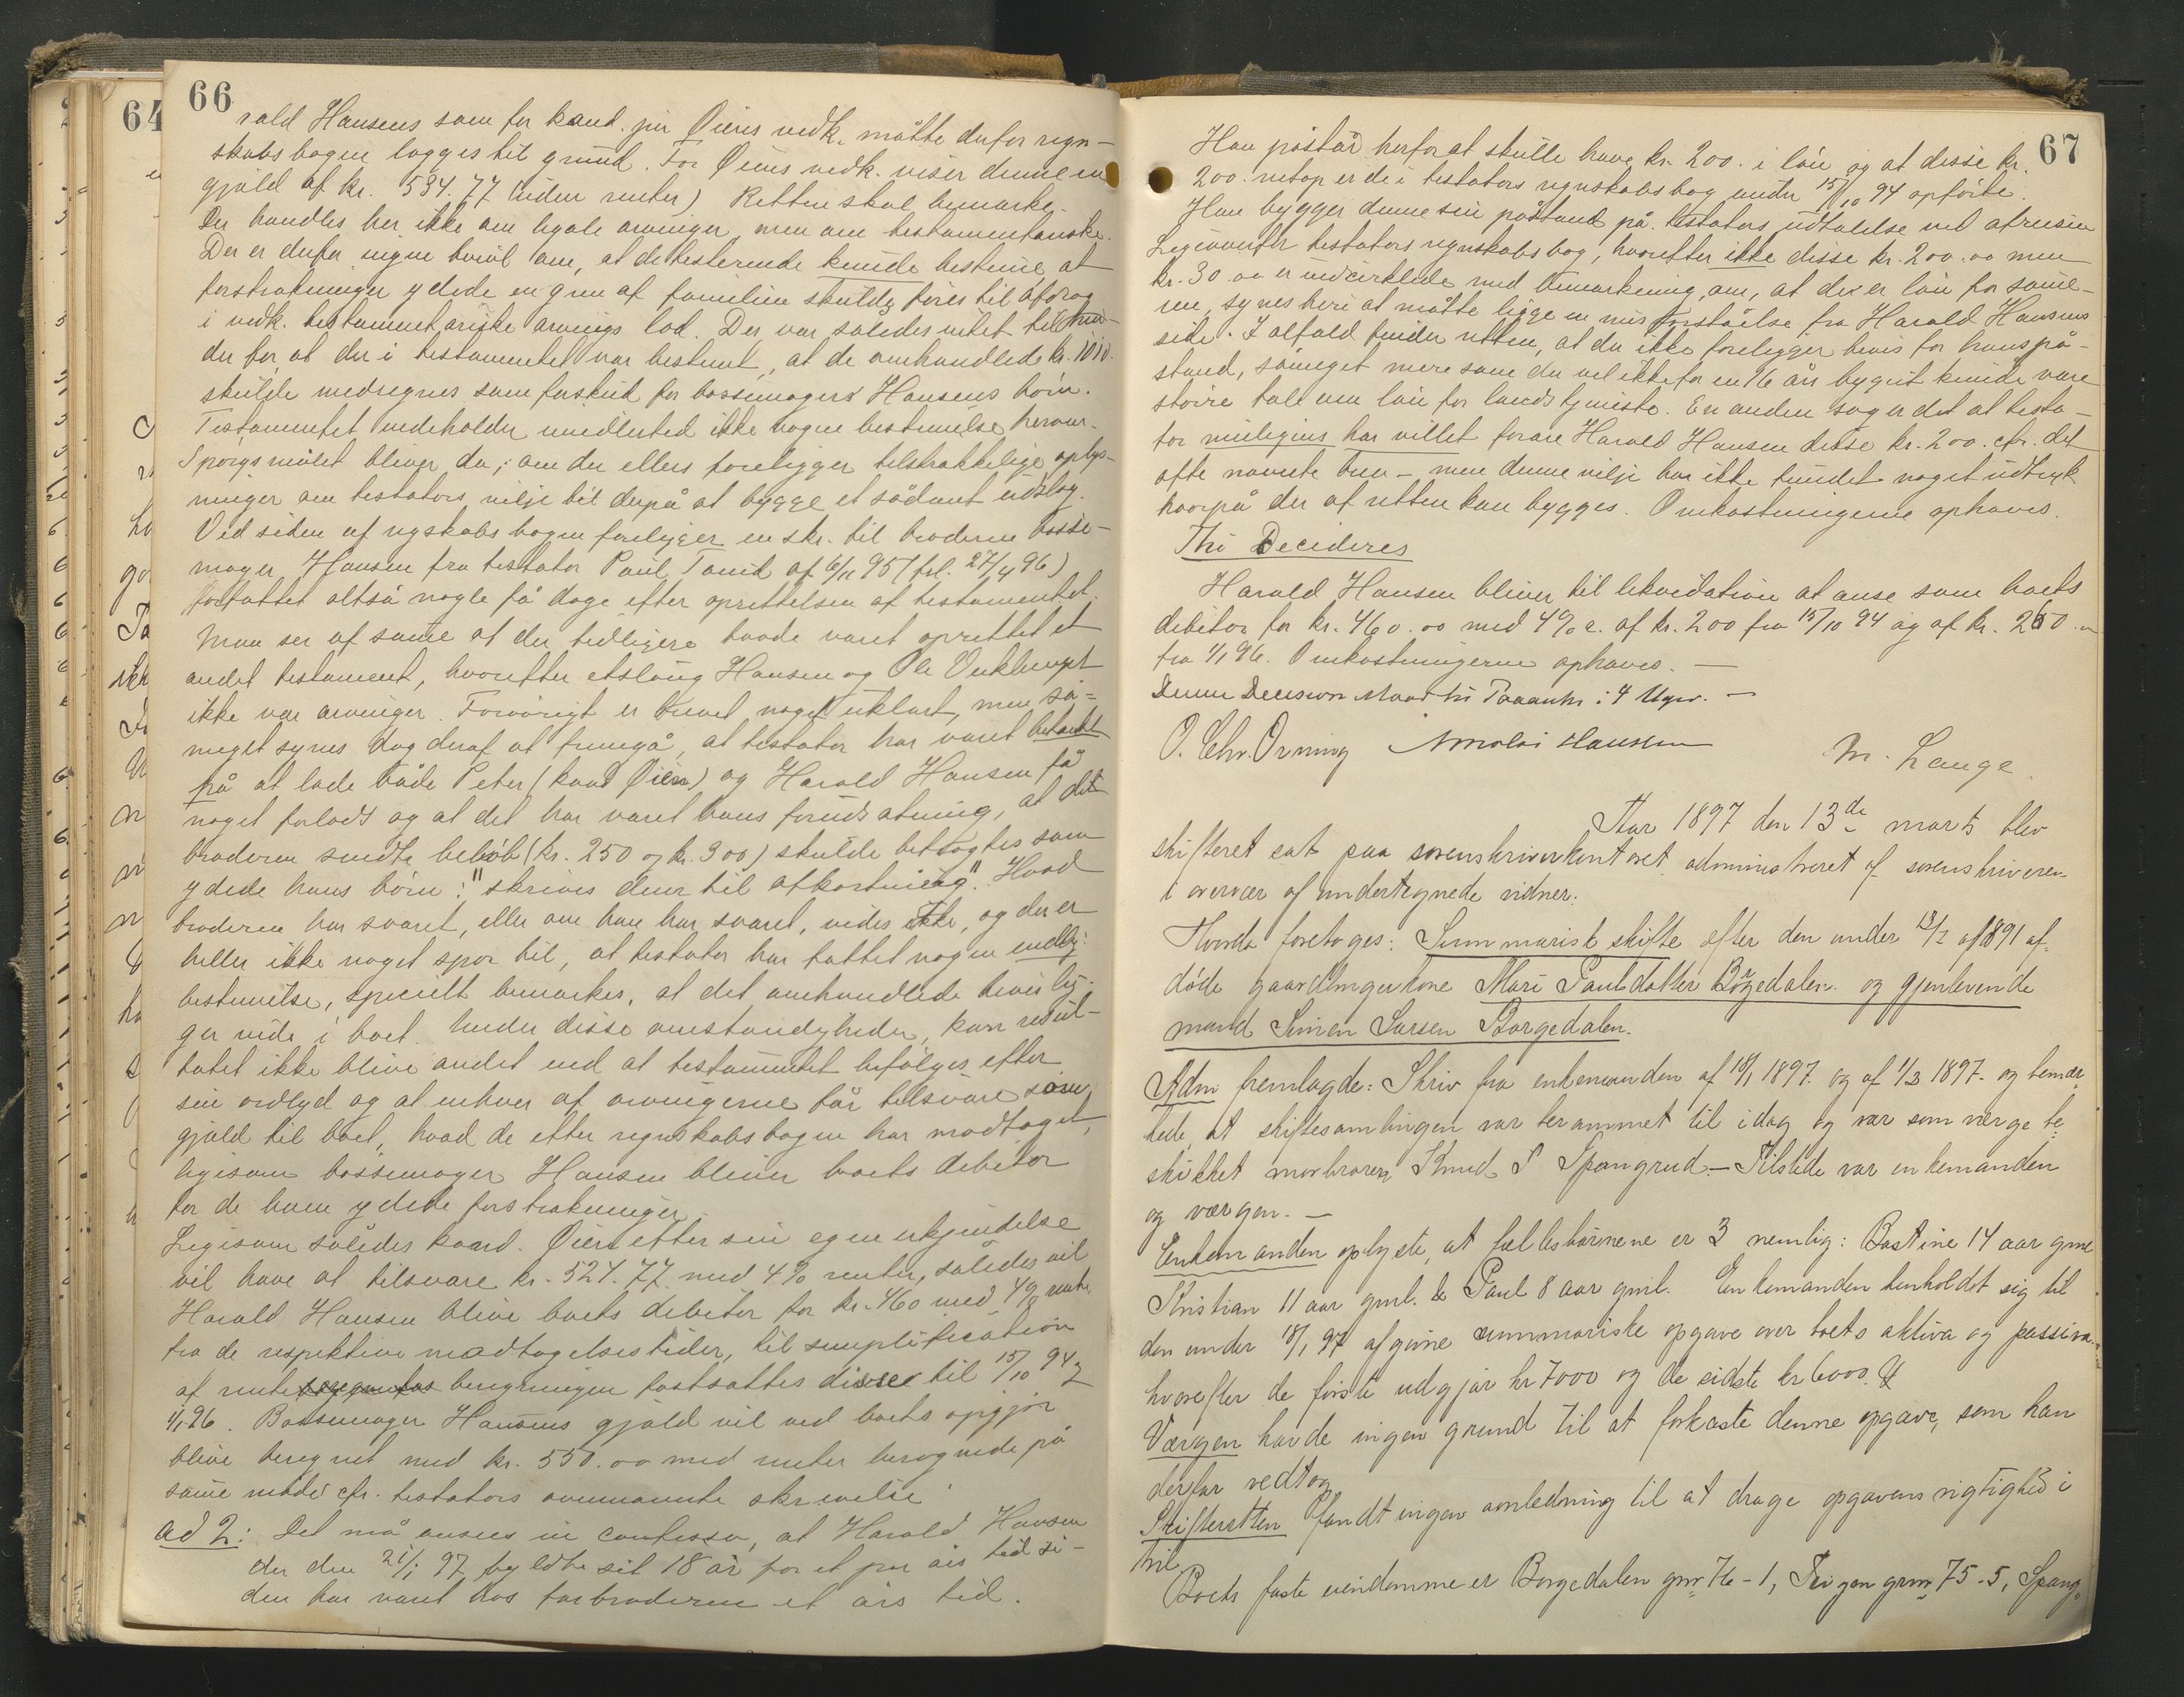 64
66
rald Hansens som for kand. jur Øiens vedk. måtte derfor regn-
skabsbogen lægges til grund. For Øiens vedk. viser denne en
gjæld af kr. 534.77 (uden renter) Retten skal bemærke.
Der handles her ikke om legale arvinger, men om testamentariske.
Der er derfor ingen tvivl om, at de testerende kunde bestemme, at
forstrækninger ydede en gren af familien skulde føres til afdrag
i vedk. testamentariske arvings lod. Der var således intet til hin-
der for, at der i testamentet var bestemt, at de omhandlede kr. 1010.
skulde medregnes som forskud for bøssemager Hansens børn.
Testamentet indeholder imidlertid ikke nogen bestemmelse herom.
Spørgsmålet bliver da, om der ellers foreligger tilstrækkelige oplys-
ninger om testators vilje til derpå at bygge et sådant udslag.
Ved siden af regskabsbogen foreligger en skr. til broderen bøsse-
mager Hansen fra testator Paul Tanid af 6/11 95 (frl. 27/4 96)
forfattet altså nogle få dage efter oprettelsen af testamentet.
Man ser af samme at der tidligere havde været oprettet et
andet testament, hvorefter etslaug Hansen og Ole
ikke var arvinger. Forøvrigt er brevet noget uklart, men så-
meget synes dog deraf at fremgå, at testator har været betænkt
på at lade både Peter (kand Øien) og Harald Hansen få
noget forlods og at det har været hans forudsætning, at det
broderen sendte beløb (kr. 250 og kr. 300) skulde betragtes som
ydede hans børn: "skrives dem til afkortning". Hvad
broderen har svaret, eller om han har svaret, vides ikke, og der er
heller ikke noget spor til, at testator har fattet nogen endelig
bestemmelse, specielt bemærkes, at det omhandlede brev lig-
ger inde i boet. Under disse omstændigheder, kan resul-
tatet ikke blive andet end at testamentet befølges efter
sin ordlyd og at enhver af arvingerne får tilsvare som
gjæld til boet, hvad de efter regnskabsbogen har modtaget,
ligesom bøssemager Hansen bliver boets debitor
for de ham ydede forstrækninger.
Ligesom således kand. Øien efter sin egen erkjendelse
vil have at tilsvare kr. 524.77 med 4% renter, således vil
Harald Hansen blive boets debitor for kr. 460 med 4% rente
fra de respektive modtagelsestider, til simplification
af rente beregningen fastsættes disse til 15/10 94 &
1/1 96. Bøssemager Hansens gjæld vil ved boets opgjør
blive beregnet med kr. 550.00 med renter beregnede på
samme måde cfr. testators ovennævnte skrivelse
ad 2: Det må ansees in confesso, at Harald Hansen
der den 21/1 97 fyldte sit 18 år for et par års tid si-
den har været hos farbroderen et års tid.
67
Han påstår herfor at skulle have kr. 200. i løn og at disse kr.
200. netop er de i testators regnskabsbog under 15/10 94 opførte.
Han bygger denne sin påstand på testators udtalelse ved afreisen
Ligeoverfor testators regnskabsbog, hvorefter ikke disse kr. 200.00 men
kr. 30.00 er indcirklede med bemærkning om, at de er løn for sam-
me, synes heri at måtte ligge en misforståelse fra Harald Hansens
side. I alfald finder retten, at der ikke foreligger bevis for hans på-
stand, såmeget mere som der vel ikke for en 16 års bygut kunde være
større tale om løn for landstjeneste. En anden sag er det at testa-
tor muligens har villet forære Harald Hansen disse kr. 200. cfr. det
ofte nævnte brev - men denne vilje har ikke fundet noget udtryk
hvorpå der af retten kan bygges. Omkostningerne ophæves.
Thi Decideres
Harald Hansen bliver til likvidation at anse som boets
debitor for kr. 460.00 med 4% r. af kr. 200 fra 15/10 94 og af kr. 260.
fra 1/1 96. Omkostningerne ophæves. —
Denne Decision : 4 Uger. —
O. Chr. Orning Nikolai Hansen
M. Lange.
Aar 1897 den 13de marts blev
skifteret sat paa sorenskriverkontoret administreret af sorenskriveren
i overvær af undertegnede vidner.
Hvorda foretoges: Summarisk skifte efter den under 13/2 af 1891 af-
døde gaardbrugerkone Mari Paulsdatter Børgedalen. og gjenlevende
mand Simen Larsen Børgedalen.
Adm fremlagde: Skriv fra enkemanden af 18/1 1897. og af 1/3 1897. og bemær-
kede, at skiftesamlingen var berammet til idag og var som værge be-
skikket morbroren Knud P Spangrud. — Tilstede var enkemanden
og værgen. —
Enkemanden oplyste, at fællesbørnene er 3 nemlig: Bastine 14 aar gml
Kristian 11 aar gml. & Paul 8 aar gml. Enkemanden henholdt sig til
den under 18/1 97 afgivne summariske opgave over boets aktiva og passiva
hvorefter de første udgjør kr 7000 og de sidste kr 6000.
Værgen havde ingen grund til at forkaste denne opgave, som han
derfor vedtog
Skifteretten fandt ingen anledning til at drage opgavens rigtighed i
tvil
Boets faste eiendomme er Borgedalen gnr 76-1, gnr 75-5, Spang-